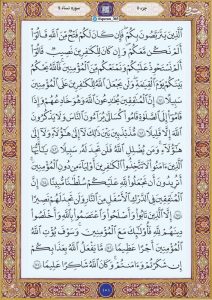 جزء ٥
سوره نساء ٤
ٱلَّذِينَ يَتَرَبَّصُونَ بِكُمْ فَإِن كَانَ لَكُمْ فَتْحٌ مِّنَ ٱللَّهِ قَالُوٓا۟
أَلَمْ نَكُن مَّعَكُمْ وَإِن كَانَ لِلْكَٰفِرِينَ نَصِيبٌ قَالُوٓا۟
أَلَمْ نَسْتَحْوِذْ عَلَيْكُمْ وَنَمْنَعْكُم مِّنَ ٱلْمُؤْمِنِينَ ۚ فَٱللَّهُ يَحْكُمُ
بَيْنَكُمْ يَوْمَ ٱلْقِيَٰمَةِ ۗ وَلَن يَجْعَلَ ٱللَّهُ لِلْكَٰفِرِينَ عَلَى ٱلْمُؤْمِنِينَ
سَبِيلًا ١٤١ إِنَّ ٱلْمُنَٰفِقِينَ يُخَٰدِعُونَ ٱللَّهَ وَهُوَ خَٰدِعُهُمْ وَإِذَا
قَامُوٓا۟ إِلَى ٱلصَّلَوٰةِ قَامُوا۟ كُسَالَىٰ يُرَآءُونَ ٱلنَّاسَ وَلَا يَذْكُرُونَ
ٱللَّهَ إِلَّا قَلِيلًا ١٤٢ مُّذَبْذَبِينَ بَيْنَ ذَٰلِكَ لَآ إِلَىٰ هَٰٓؤُلَآءِ وَلَآ إِلَىٰ
هَٰٓؤُلَآءِ ۚ وَمَن يُضْلِلِ ٱللَّهُ فَلَن تَجِدَ لَهُۥ سَبِيلًا ١٤٣ يَٰٓأَيُّهَا
ٱلَّذِينَ ءَامَنُوا۟ لَا تَتَّخِذُوا۟ ٱلْكَٰفِرِينَ أَوْلِيَآءَ مِن دُونِ ٱلْمُؤْمِنِينَ ۚ
أَتُرِيدُونَ أَن تَجْعَلُوا۟ لِلَّهِ عَلَيْكُمْ سُلْطَٰنًا مُّبِينًا ١٤٤ إِنَّ
ٱلْمُنَٰفِقِينَ فِى ٱلدَّرْكِ ٱلْأَسْفَلِ مِنَ ٱلنَّارِ وَلَن تَجِدَ لَهُمْ نَصِيرًا
١٤٥ إِلَّا ٱلَّذِينَ تَابُوا۟ وَأَصْلَحُوا۟ وَٱعْتَصَمُوا۟ بِٱللَّهِ وَأَخْلَصُوا۟
دِينَهُمْ لِلَّهِ فَأُو۟لَٰٓئِكَ مَعَ ٱلْمُؤْمِنِينَ ۖ وَسَوْفَ يُؤْتِ ٱللَّهُ
ٱلْمُؤْمِنِينَ أَجْرًا عَظِيمًا ١٤٦ مَّا يَفْعَلُ ٱللَّهُ بِعَذَابِكُمْ
إِن شَكَرْتُمْ وَءَامَنتُمْ ۚ وَكَانَ ٱللَّهُ شَاكِرًا عَلِيمًا ١٤٧
١٠١